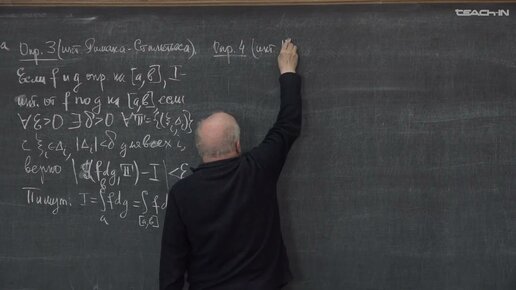 TEACH-IN
а
Опр. 3 (инт. Римана-Стилтьеса).
Если f и g опр. на [a, b], I-
инт. от f по g на [a, b], если
∀ε>0 ∃δ>0 ∀𝕋={(ξᵢ, Δᵢ)}
с ξᵢ∈Δᵢ, |Δᵢ|<δ для всех i,
верно | (fdg, 𝕋) - I | < ε
Пишут. I = ∫ₐᵇ f dg = ∫_[a,b] f d
Опр. 4 (инт.